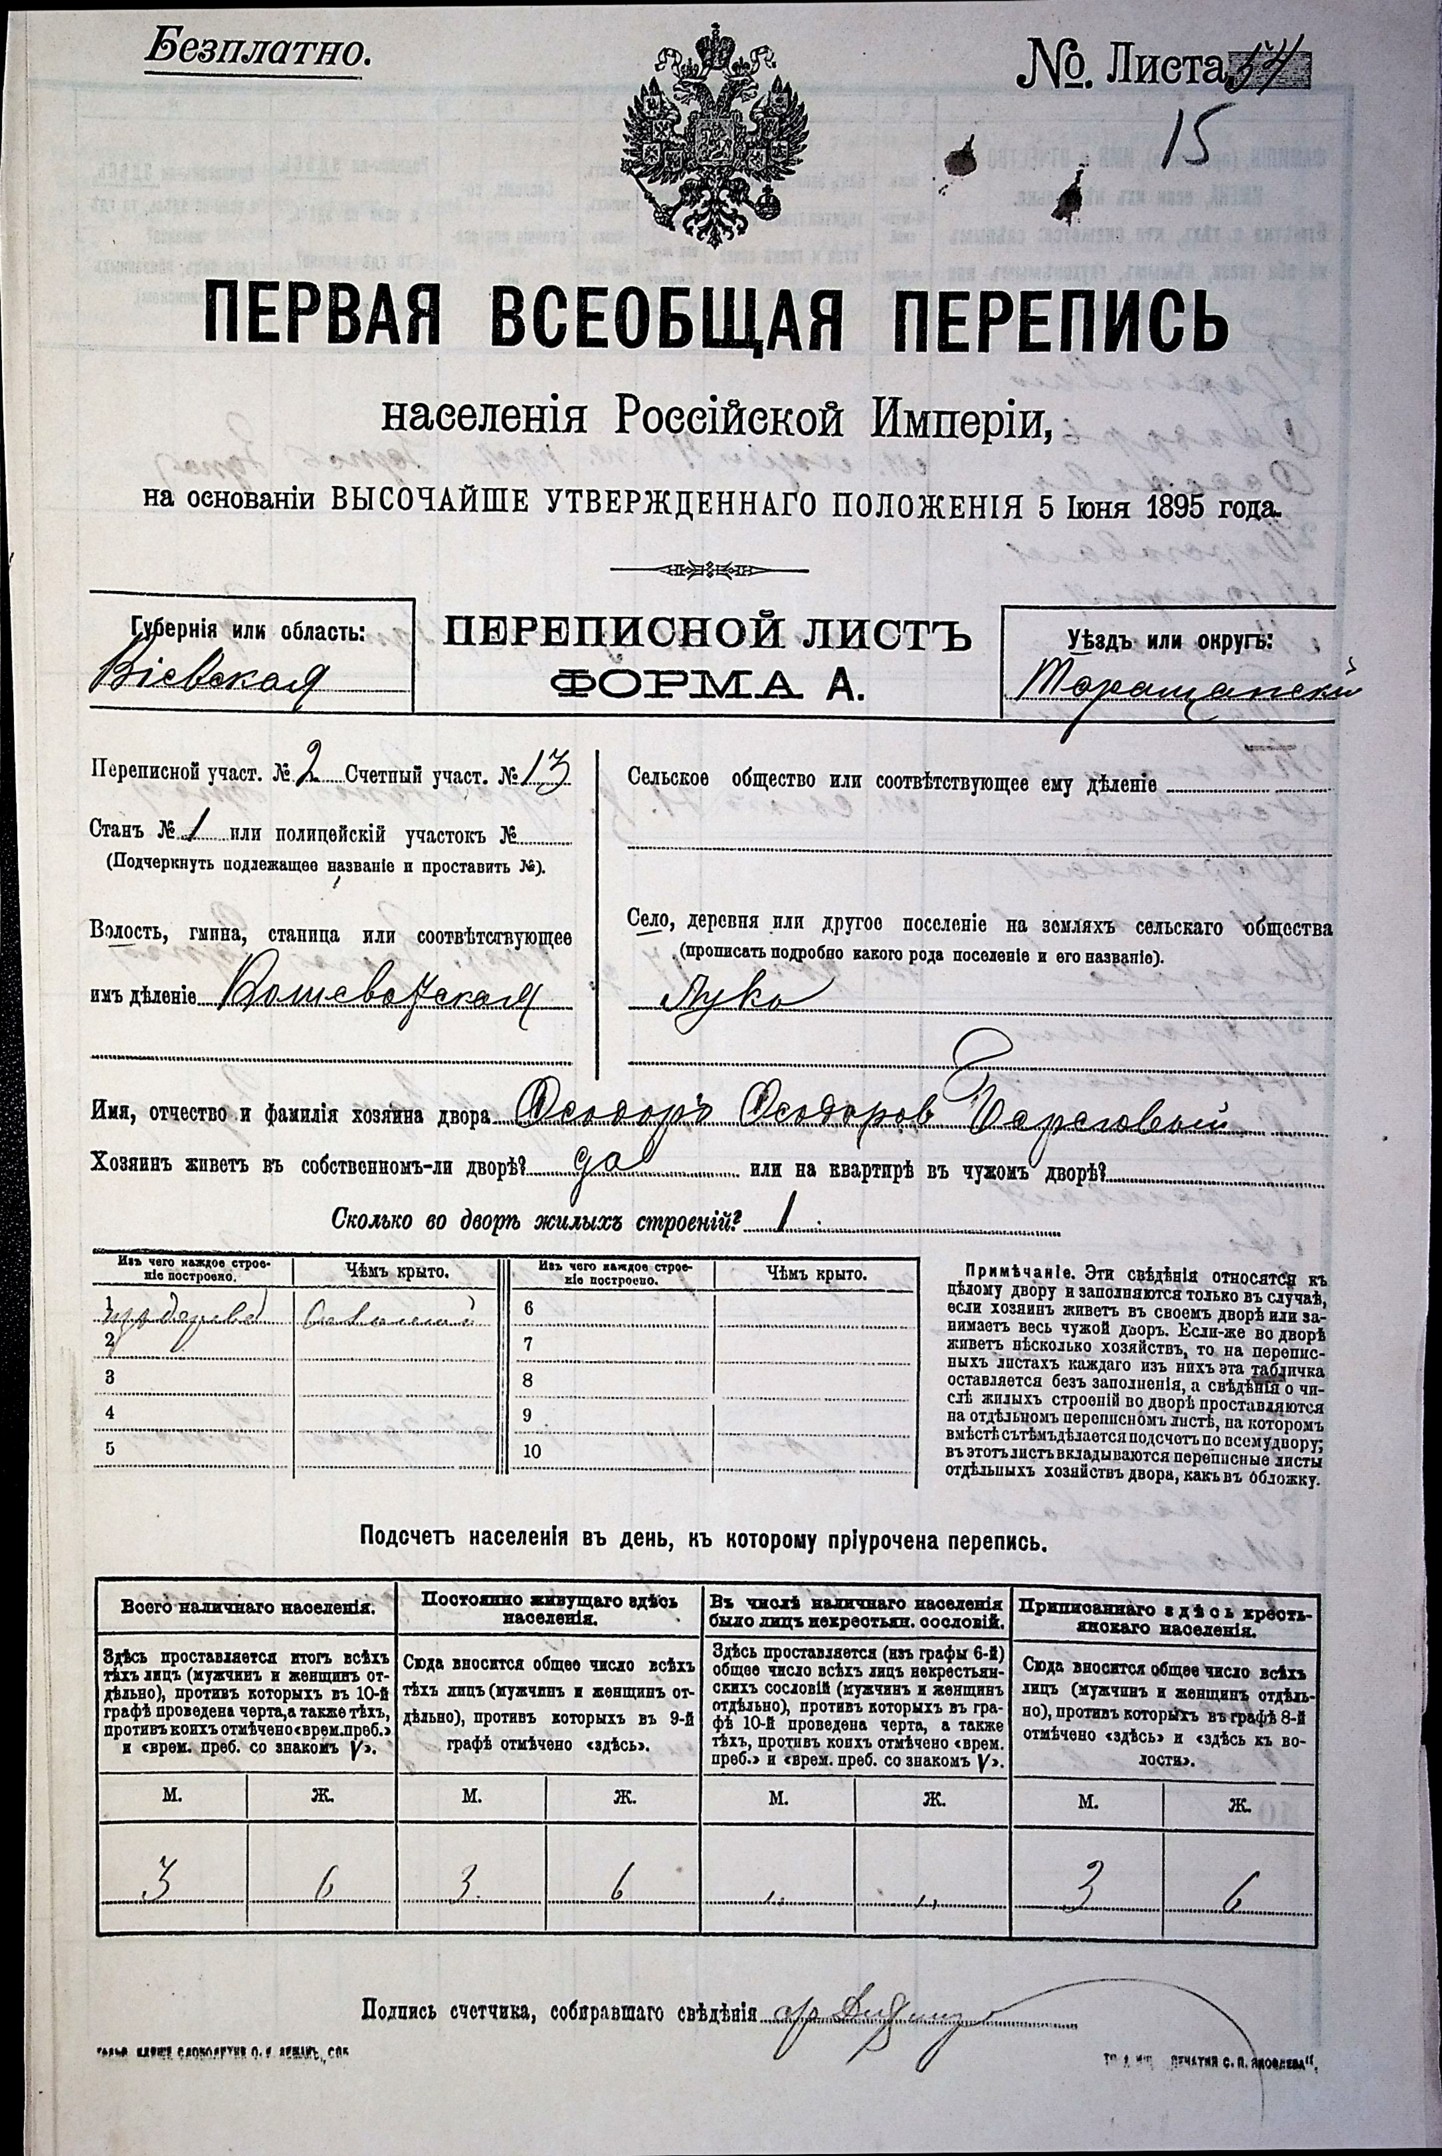 Безплатно.
No. Листа 34
15
ПЕРВАЯ ВСЕОБЩАЯ ПЕРЕПИСЬ
населенія Россійской Имперіи,
на основаніи ВЫСОЧАЙШЕ УТВЕРЖДЕННАГО ПОЛОЖЕНІЯ 5 Іюня 1895 года.
Губернія или область:
Кіевская
ПЕРЕПИСНОЙ ЛИСТЪ
ФОРМА А.
Уѣздъ или округъ:
Таращанскій
Переписной участ. № 2 Счетный участ. № 13
Станъ № 1 или полицейскій участокъ №
(Подчеркнуть подлежащее названіе и проставить №).
Волость, гмина, станица или соотвѣтствующее
имъ дѣленіе
Сельское общество или соотвѣтствующее ему дѣленіе
Село, деревня или другое поселеніе на земляхъ сельскаго общества
(прописать подробно какого рода поселеніе и его названіе).
Лука
Имя, отчество и фамилія хозяина двора Феодоръ Феодоровъ Береговый
Хозяинъ живетъ въ собственномъ-ли дворѣ? да или на квартирѣ въ чужомъ дворѣ?
Сколько во дворѣ жилыхъ строеній? 1
Изъ чего каждое строе-
ніе построено.
Чѣмъ крыто.
Изъ чего каждое строе-
ніе построено.
Чѣмъ крыто.
1 изъ дерева Соломой 6
2 7
3 8
4 9
5 10
Примѣчаніе. Эти свѣдѣнія относятся къ
цѣлому двору и заполняются только въ случаѣ,
если хозяинъ живетъ въ своемъ дворѣ или за-
нимаетъ весь чужой дворъ. Если-же во дворѣ
живетъ нѣсколько хозяйствъ, то на перепис-
ныхъ листахъ каждаго изъ нихъ эта табличка
оставляется безъ заполненія, а свѣдѣнія о чи-
слѣ жилыхъ строеній во дворѣ проставляются
на отдѣльномъ переписномъ листѣ, на которомъ
вмѣстѣ съ тѣмъ дѣлается подсчетъ по всему двору;
въ этотъ листъ вкладываются переписные листы
отдѣльныхъ хозяйствъ двора, какъ въ обложку.
Подсчетъ населенія въ день, къ которому пріурочена перепись.
Всего наличнаго населенія.
Здѣсь проставляется итогъ всѣхъ
тѣхъ лицъ (мужчинъ и женщинъ от-
дѣльно), противъ которыхъ въ 10-й
графѣ проведена черта, а также тѣхъ,
противъ коихъ отмѣчено «врем. преб.»
и «врем. преб. со знакомъ V».
Постоянно живущаго здѣсь
населенія.
Сюда вносится общее число всѣхъ
тѣхъ лицъ (мужчинъ и женщинъ от-
дѣльно), противъ которыхъ въ 9-й
графѣ отмѣчено «здѣсь».
Въ числѣ наличнаго населенія
было лицъ некрестьян. сословій.
Здѣсь проставляется (изъ графы 6-й)
общее число всѣхъ лицъ некрестьян-
скихъ сословій (мужчинъ и женщинъ
отдѣльно), противъ которыхъ въ гра-
фѣ 10-й проведена черта, а также
тѣхъ, противъ коихъ отмѣчено «врем.
преб.» и «врем. преб. со знакомъ V».
Приписаннаго здѣсь кресть-
янскаго населенія.
Сюда вносится общее число всѣхъ
лицъ (мужчинъ и женщинъ отдѣль-
но), противъ которыхъ въ графѣ 8-й
отмѣчено «здѣсь» и «здѣсь къ во-
лости».
М. Ж. М. Ж. М. Ж. М. Ж.
3 6 3 6 „ „ 3 6
Подпись счетчика, собиравшаго свѣдѣнія